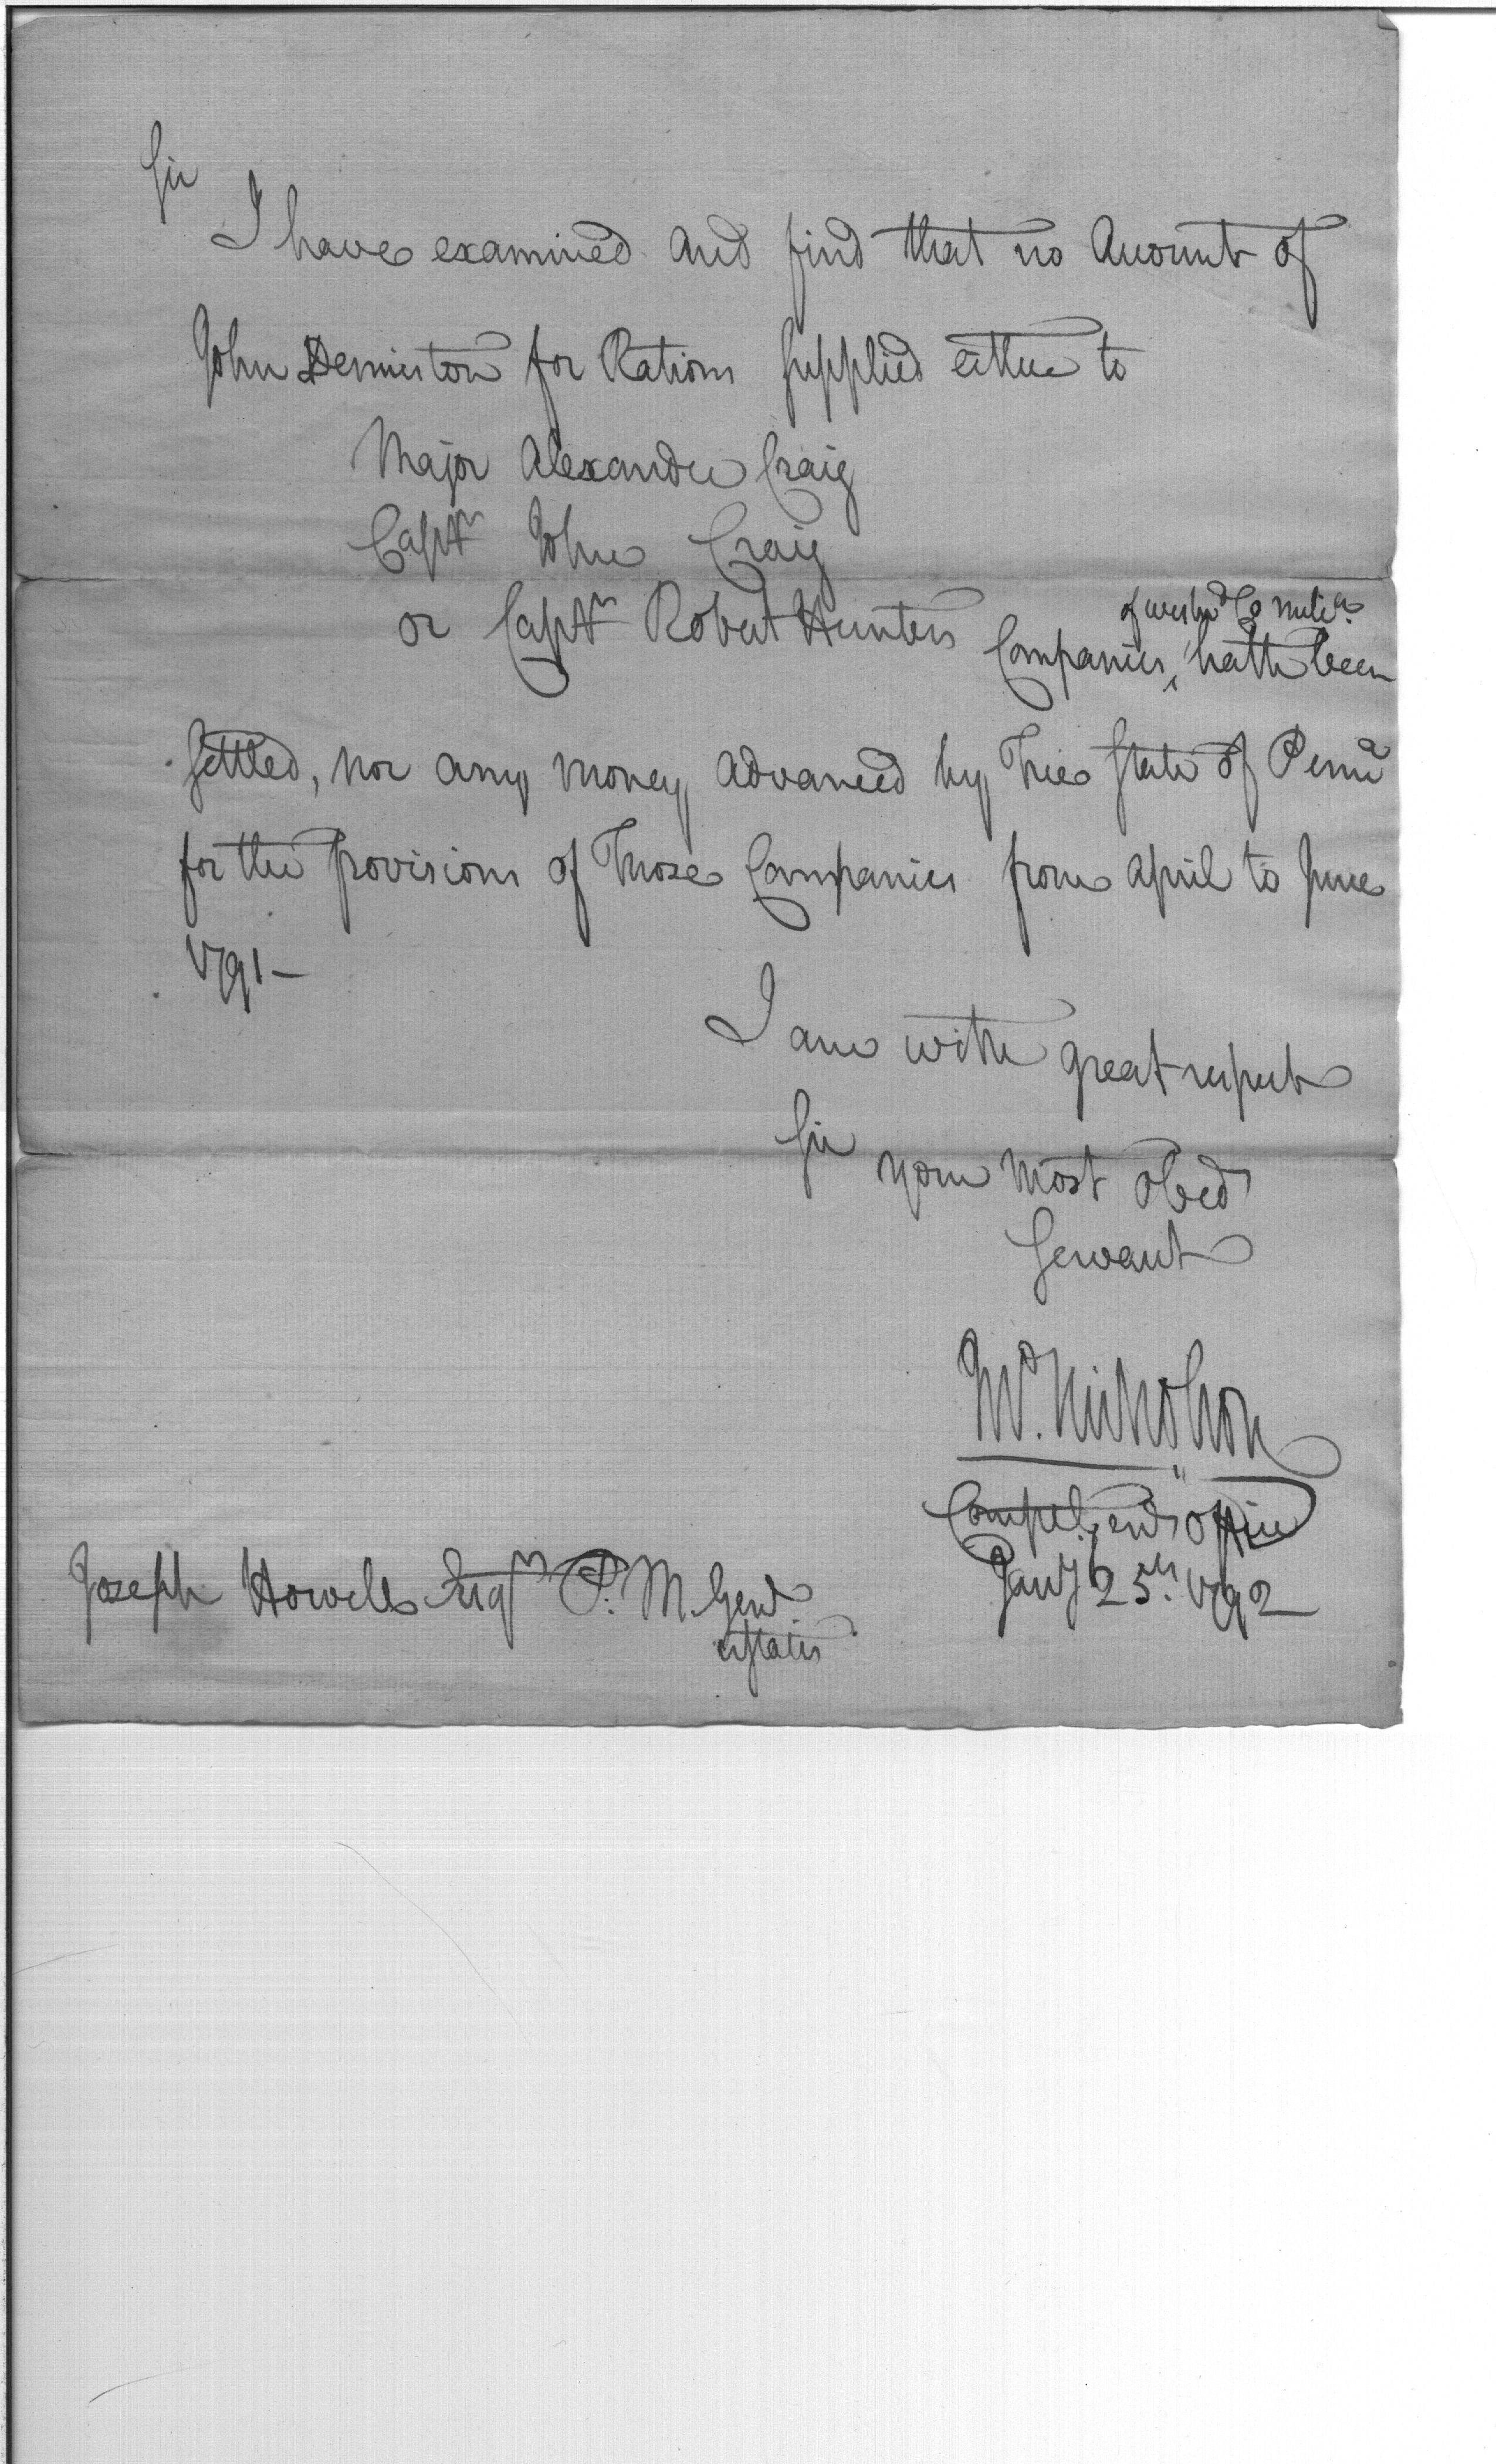 Sir
I have examined and find that no Accounts of
John Denniston for Rations Supplied either to
Major Alexander Craig
Captn John Craig
or Captn Robert Hunters Companies, hath been
of westmd Co militia
Settled, nor any money advanced by The State of Penna
for the provisions of Those Companies from April to June
1791 —
I am with great respect
Sir your most obed
Servant
Jno. Nicholson
Compt. Genl's Office
Jany 25th. 1792
Joseph Howell Esqr P. M. Genl
uStates